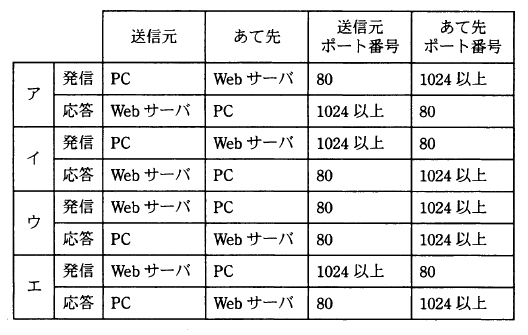 送信元 あて先 送信元ポート番号 あて先ポート番号
ア 発信 PC Webサーバ 80 1024以上
応答 Webサーバ PC 1024以上 80
イ 発信 PC Webサーバ 1024以上 80
応答 Webサーバ PC 80 1024以上
ウ 発信 Webサーバ PC 80 1024以上
応答 PC Webサーバ 80 1024以上
エ 発信 Webサーバ PC 1024以上 80
応答 PC Webサーバ 80 1024以上